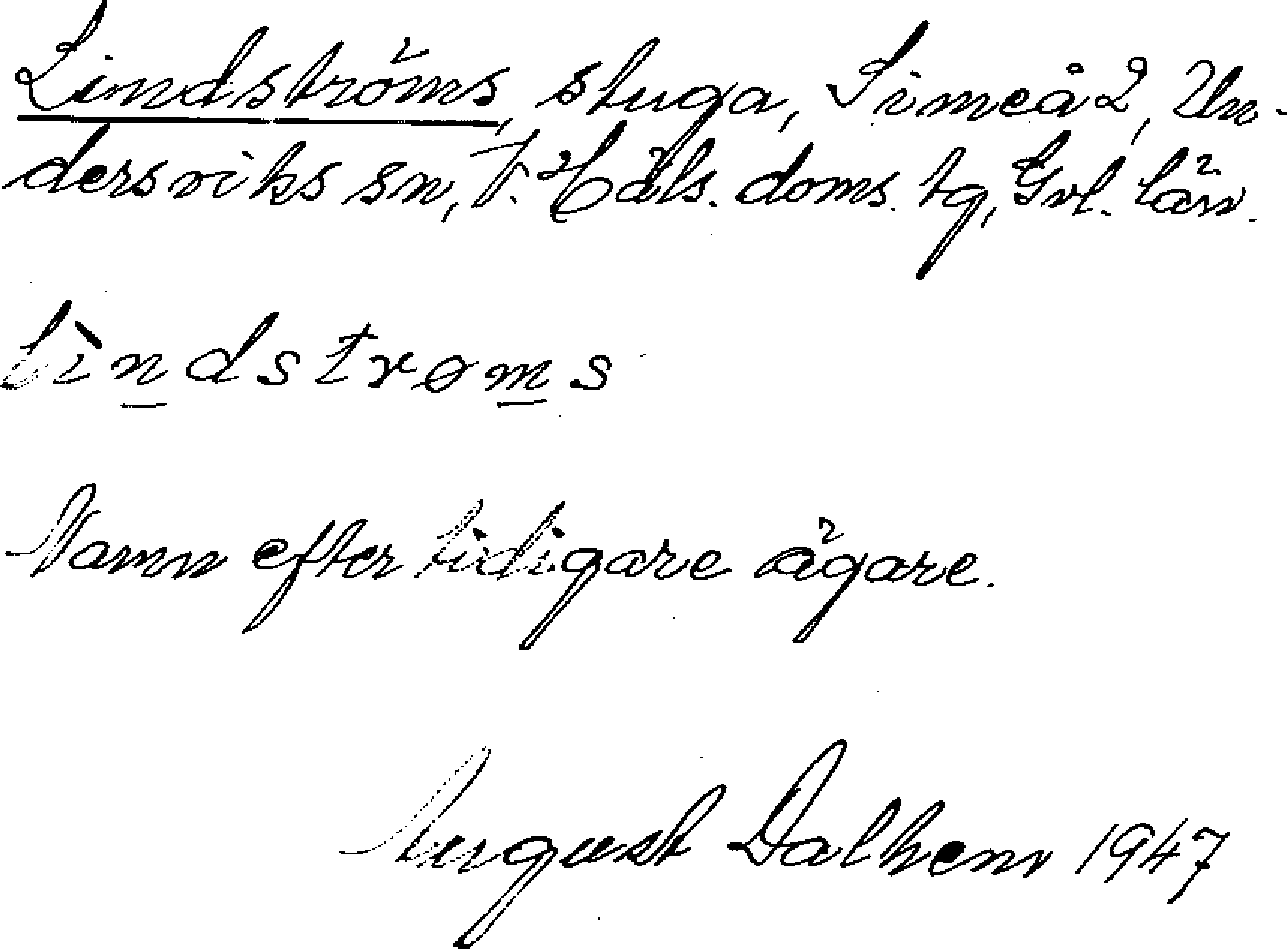 Lindströms, stuga, Simeå 2, Un-
dersviks sn, V. Häls. doms. tg, Gvl. län.
lìndstrøms
Namn efter tidigare ägare.
August Dalhem 1947